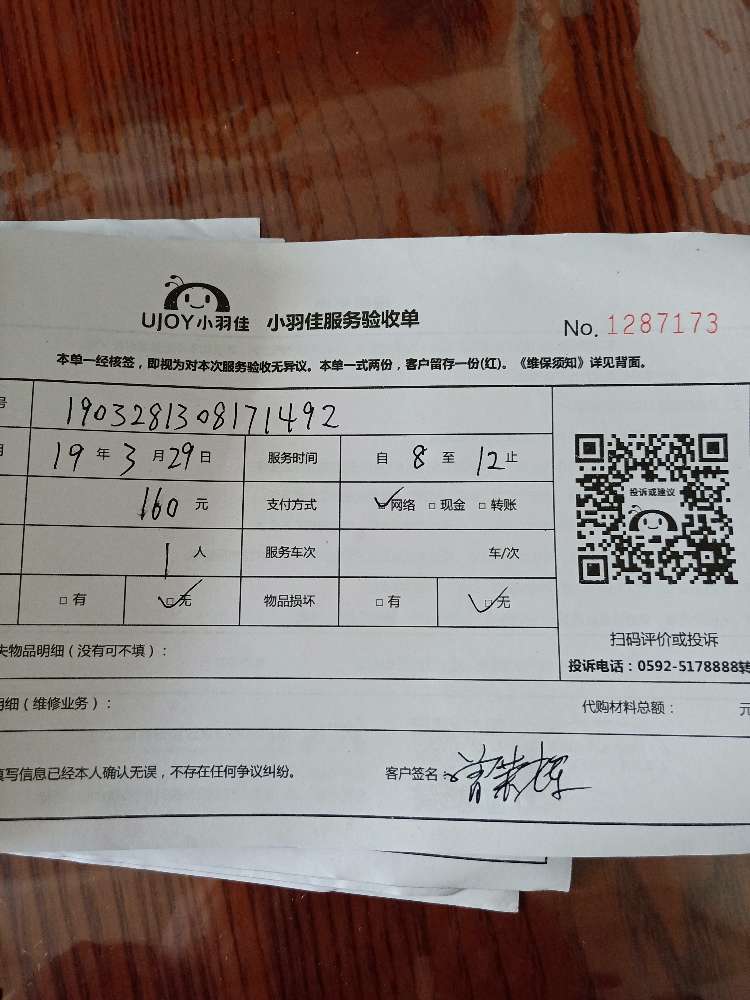 UJOY小羽佳 小羽佳服务验收单
No. 1287173
本单一经核签，即视为对本次服务验收无异议。本单一式两份，客户留存一份(红)。《维保须知》详见背面。
号 1903281308171492
19 年 3 月 29 日 服务时间 自 8 至 12 止
160 元 支付方式 □网络 □现金 □转账
投诉或建议
1 人 服务车次 车/次
□有 □无 物品损坏 □有 □无
扫码评价或投诉
失物品明细（没有可不填）：
投诉电话：0592-5178888转
明细（维修业务）： 代购材料总额： 元
填写信息已经本人确认无误，不存在任何争议纠纷。 客户签名：曾荣辉